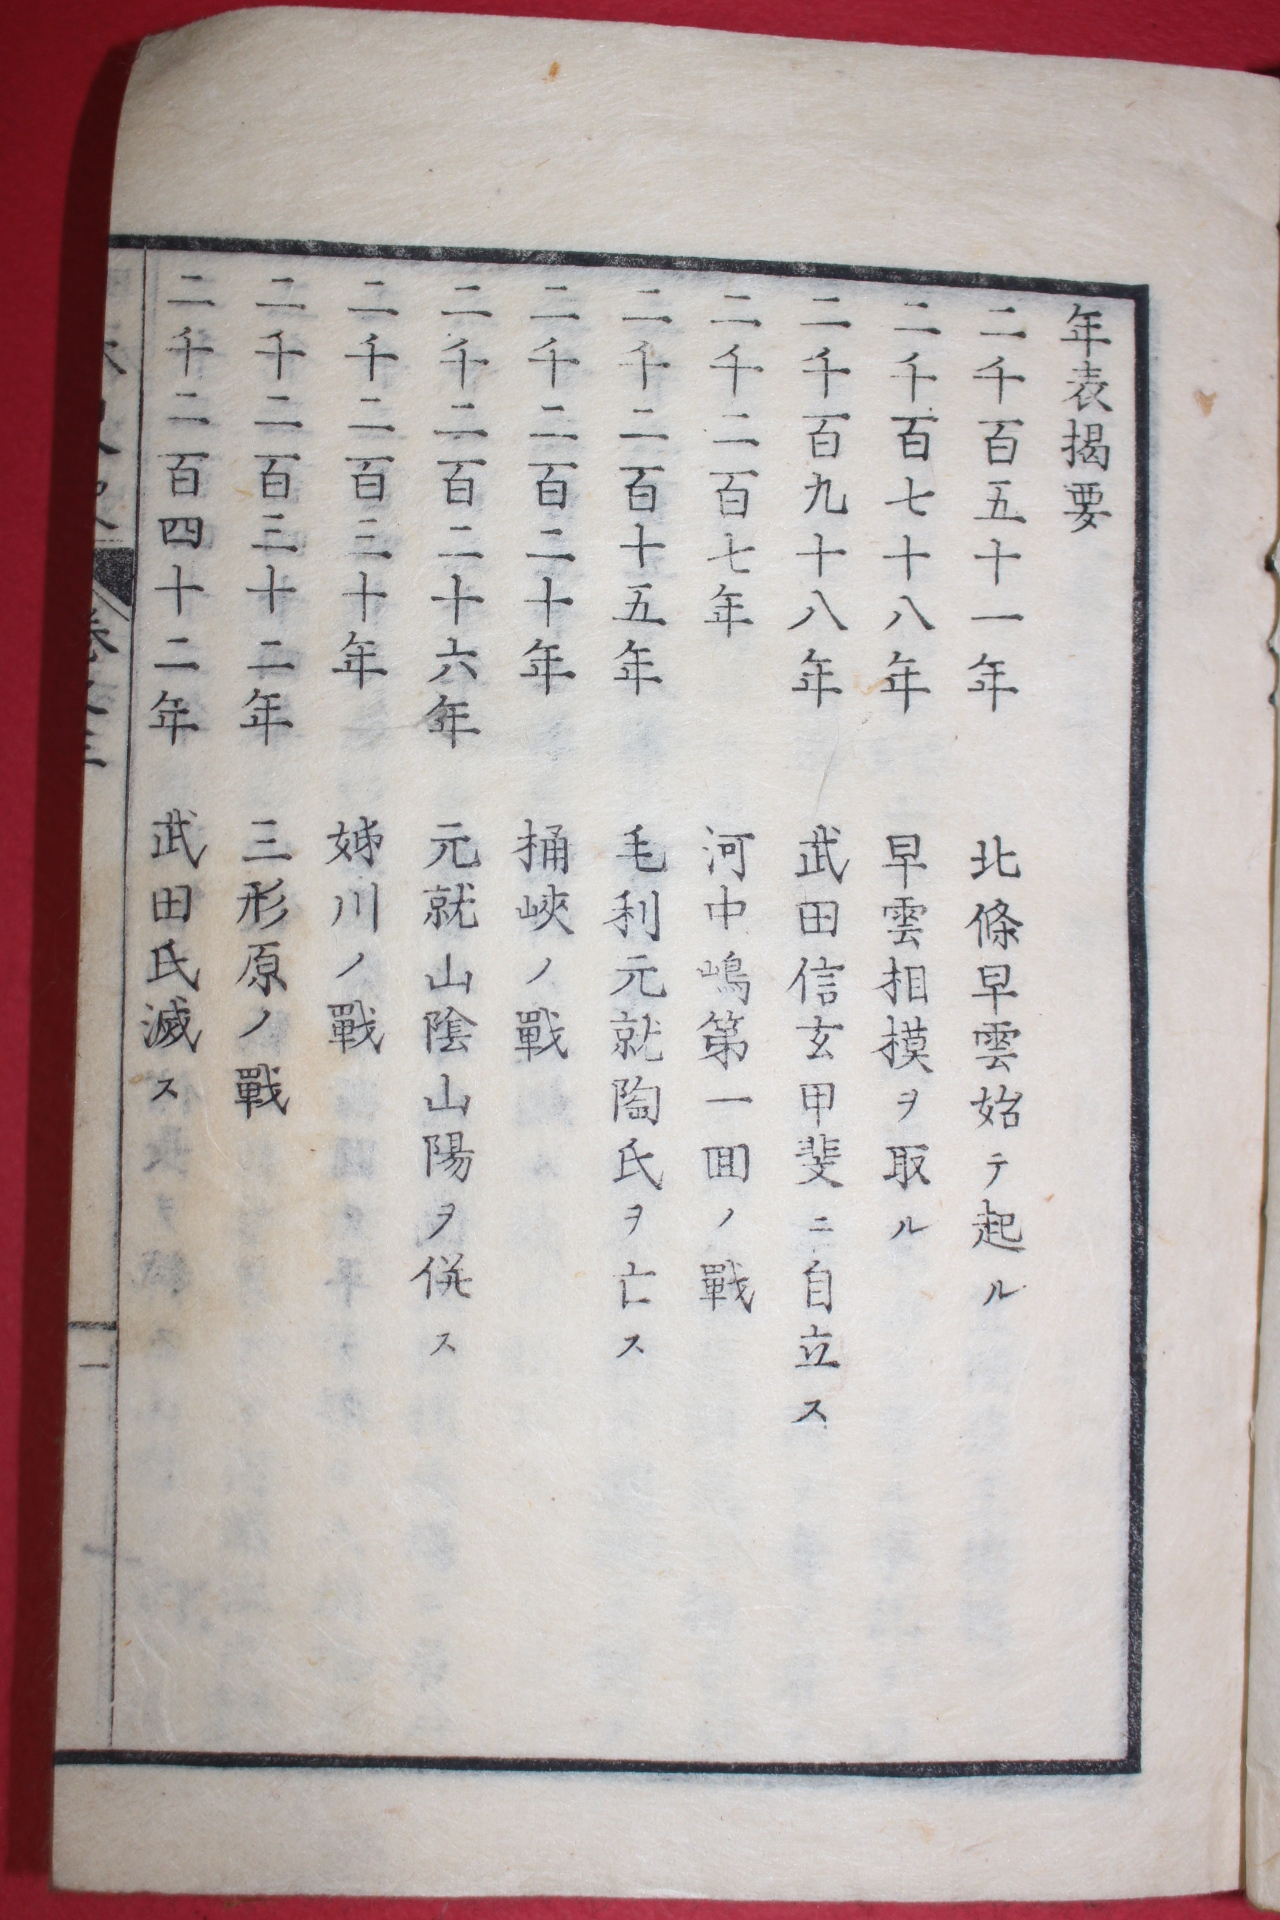 年表揭要
二千百五十一年 北條早雲始テ起ル
二千百七十八年 早雲相摸ヲ取ル
二千百九十八年 武田信玄甲斐ニ自立ス
二千二百七年 河中嶋第一回ノ戰
二千二百十五年 毛利元就陶氏ヲ亡ス
二千二百二十年 捅峽ノ戰
二千二百二十六年 元就山陰山陽ヲ併ス
二千二百三十年 姊川ノ戰
二千二百三十二年 三形原ノ戰
二千二百四十二年 武田氏滅ス
卷 一